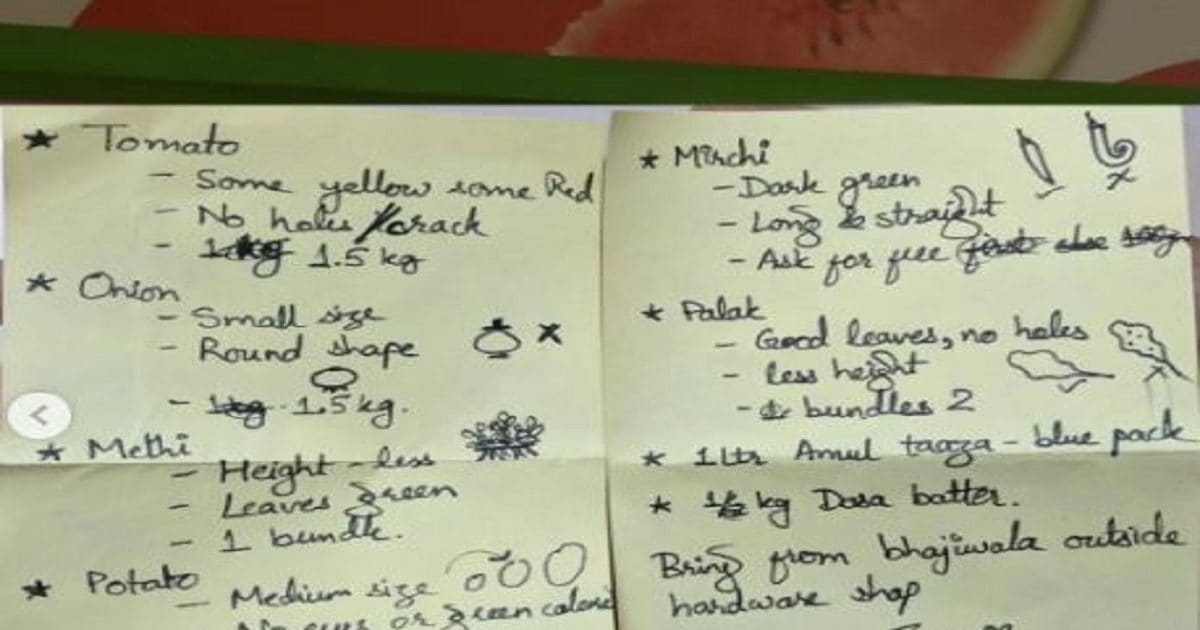 ★ Tomato
- Some yellow some Red
- No holes / crack
- 1kg 1.5 kg
★ Onion
- Small size
- Round shape
- 1kg 1.5 kg.
★ Methi
- Height - less
- Leaves green
- 1 bundle.
★ Potato
- Medium size
or green
★ Mirchi
- Dark green
- Long & straight
- Ask for free
★ Palak
- Good leaves, no holes
- less height
- bundles 2
★ 1 Ltr Amul taaza - blue pack
★ 1/2 kg Dosa batter.
Bring from bhajiwala outside
hardware shop